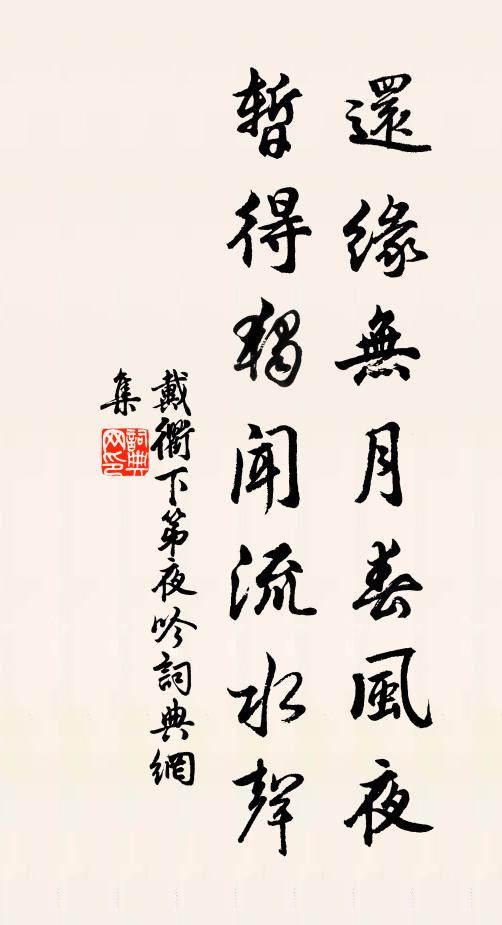 還緣無月春風夜
暫得獨聞流水聲
戴衢下第夜吟詞典網
集
詞典
网印